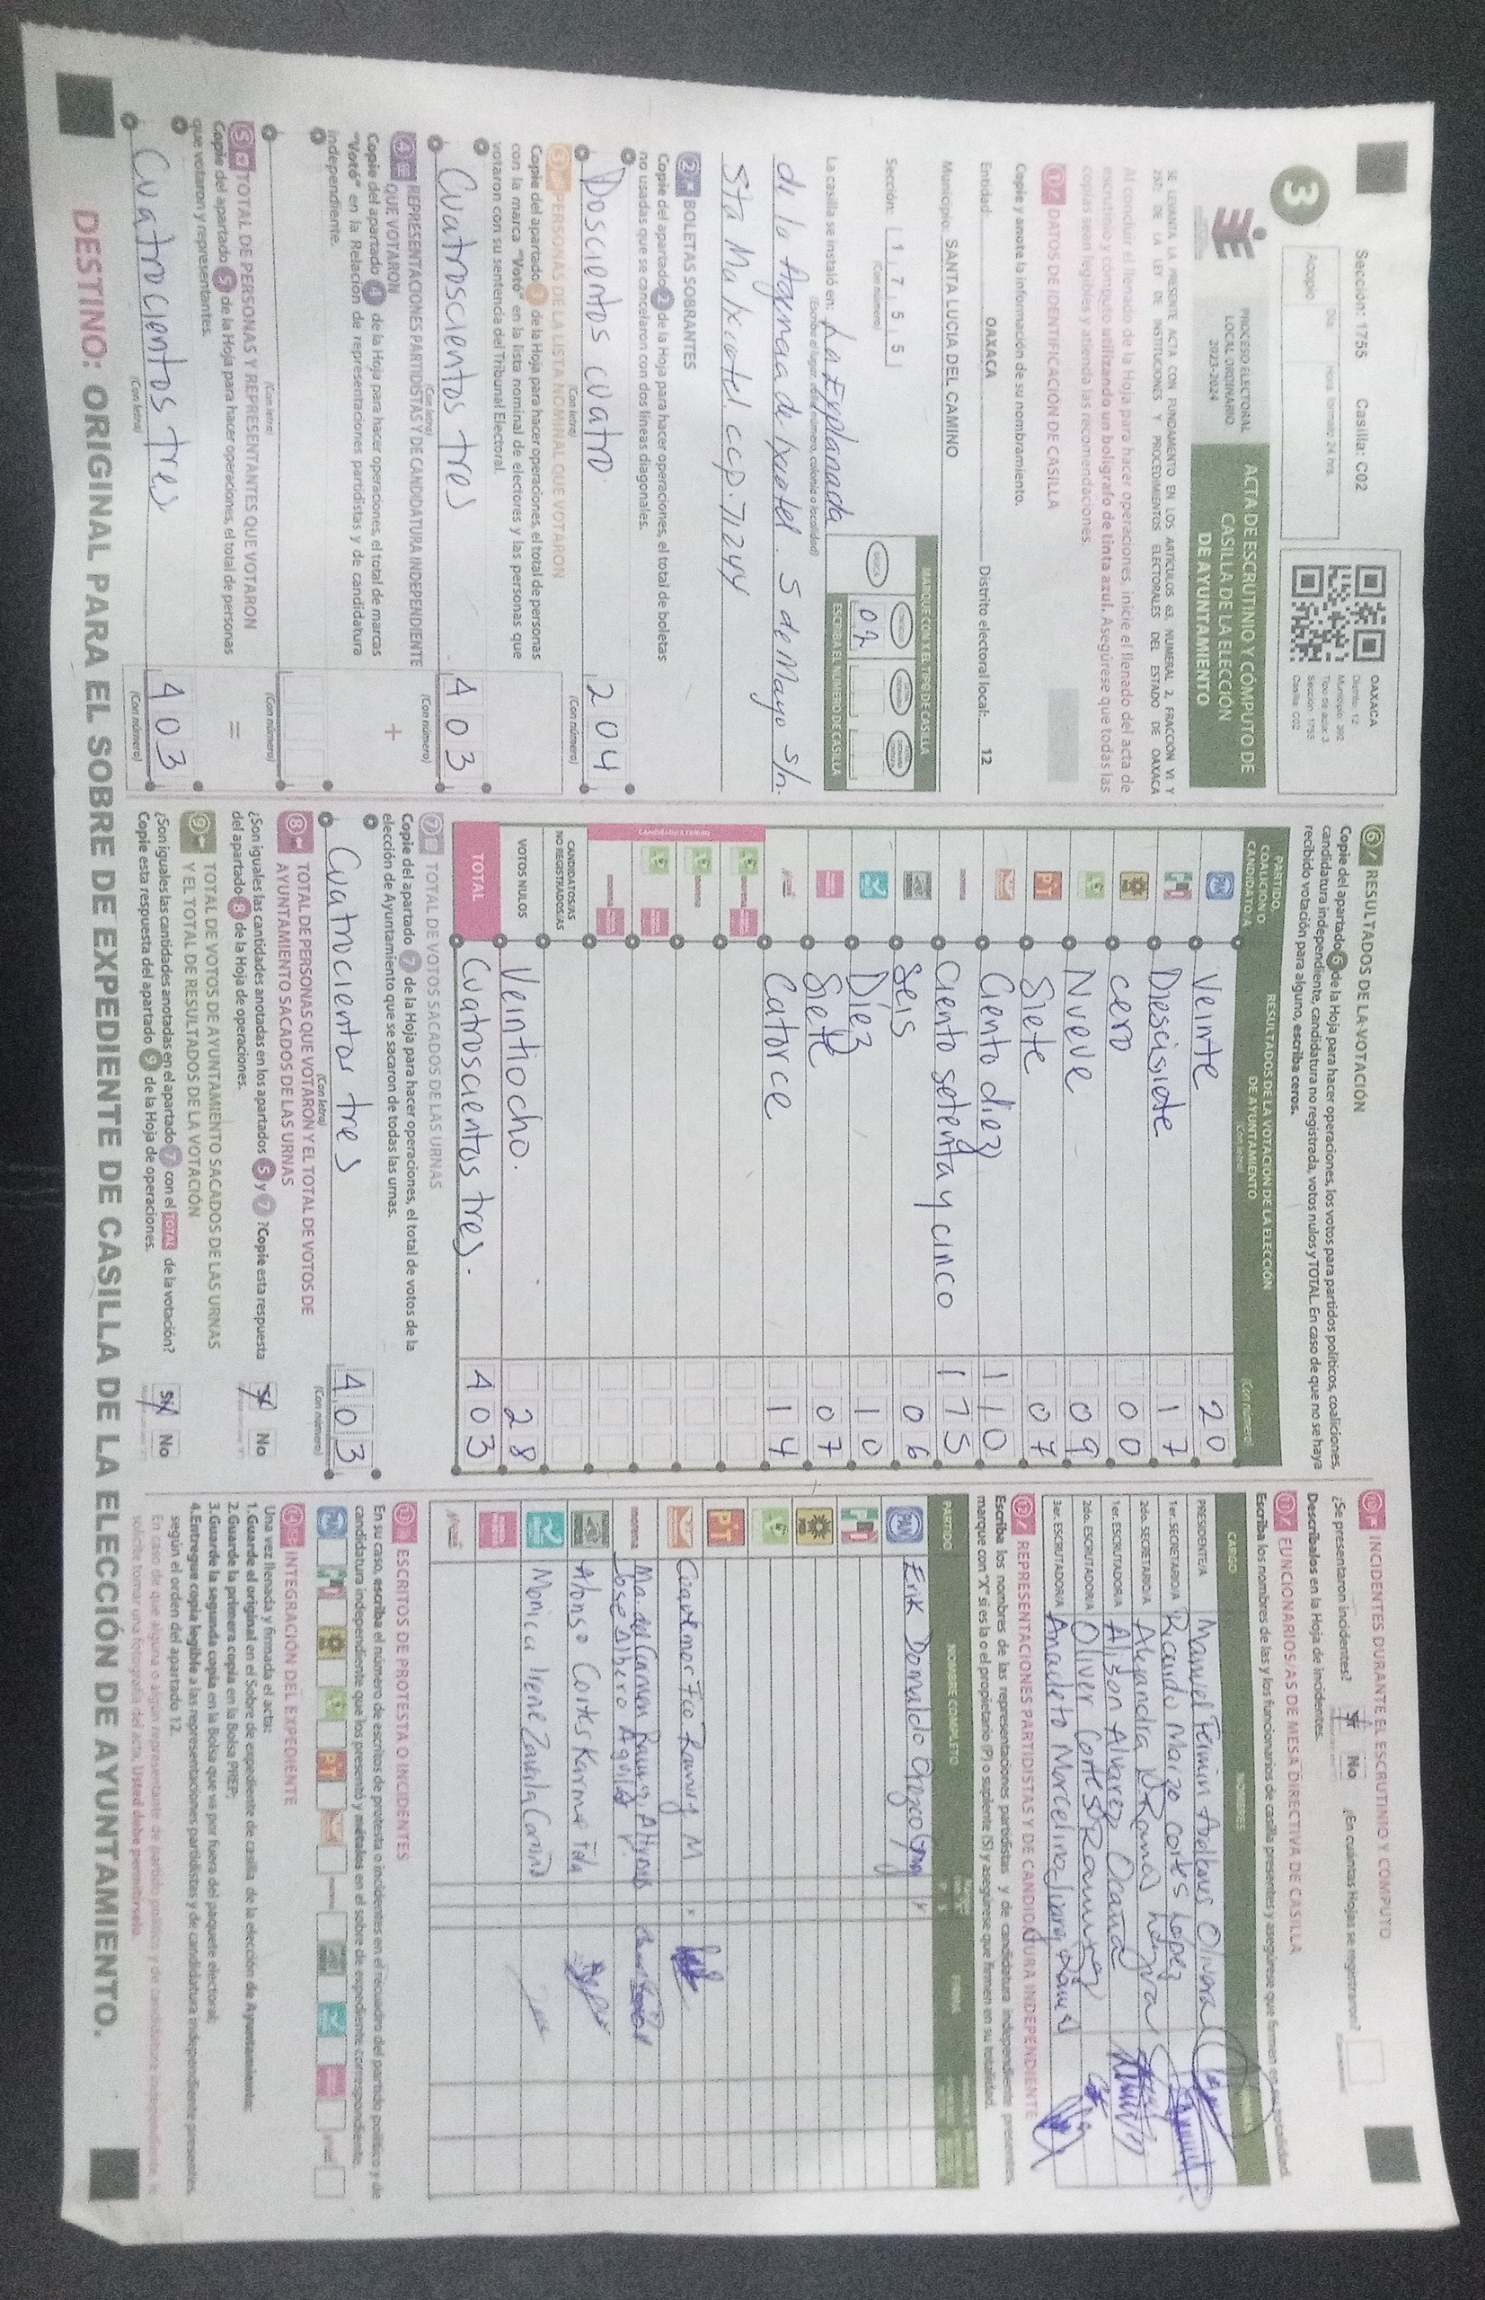 Sección: 1755 Casilla: C02
3
Acopio
Día
Hora formato 24 hrs.
OAXACA
Distrito: 12
Tipo de acta: 3
Sección: 1755
Casilla: C02
PROCESO ELECTORAL
LOCAL ORDINARIO
2023-2024
ACTA DE ESCRUTINIO Y CÓMPUTO DE
CASILLA DE LA ELECCIÓN
DE AYUNTAMIENTO
SE LEVANTA LA PRESENTE ACTA CON FUNDAMENTO EN LOS ARTÍCULOS 63, NUMERAL 2, FRACCIÓN VI Y
257; DE LA LEY DE INSTITUCIONES Y PROCEDIMIENTOS ELECTORALES DEL ESTADO DE OAXACA
Al concluir el llenado de la Hoja para hacer operaciones, inicie el llenado del acta de
escrutinio y cómputo utilizando un bolígrafo de tinta azul. Asegúrese que todas las
copias sean legibles y atienda las recomendaciones.
1 DATOS DE IDENTIFICACIÓN DE CASILLA
Copie y anote la información de su nombramiento.
Entidad: OAXACA Distrito electoral local: 12
Municipio: SANTA LUCIA DEL CAMINO
Sección: 1 7 5 5
(Con número)
MARQUE CON X EL TIPO DE CASILLA
ESCRIBA EL NÚMERO DE CASILLA
02
La casilla se instaló en: La Explanada
(Escriba el lugar, calle, número, colonia o localidad)
de la Agencia de 5 de Mayo s/n.
Sta Ma Ixcotel. C.C.P. 71244
2 BOLETAS SOBRANTES
Copie del apartado 2 de la Hoja para hacer operaciones, el total de boletas
no usadas que se cancelaron con dos líneas diagonales.
Doscientos cuatro 204
(Con letra) (Con número)
3 PERSONAS DE LA LISTA NOMINAL QUE VOTARON
Copie del apartado 3 de la Hoja para hacer operaciones, el total de personas
con la marca "Votó" en la lista nominal de electores y las personas que
votaron con su sentencia del Tribunal Electoral.
Cuatroscientos tres 403
(Con letra) (Con número)
4 REPRESENTACIONES PARTIDISTAS Y DE CANDIDATURA INDEPENDIENTE
QUE VOTARON +
Copie del apartado 4 de la Hoja para hacer operaciones, el total de marcas
"Votó" en la Relación de representaciones partidistas y de candidatura
independiente.
(Con letra) (Con número)
5 TOTAL DE PERSONAS Y REPRESENTANTES QUE VOTARON =
Copie del apartado 5 de la Hoja para hacer operaciones, el total de personas
que votaron y representantes.
Cuatrocientos tres 403
(Con letra) (Con número)
6 RESULTADOS DE LA VOTACIÓN
Copie del apartado 6 de la Hoja para hacer operaciones, los votos para partidos políticos, coaliciones,
candidatura independiente, candidatura no registrada, votos nulos y TOTAL. En caso de que no se haya
recibido votación para alguno, escriba ceros.
PARTIDO, COALICIÓN O CANDIDATO/A
RESULTADOS DE LA VOTACIÓN DE LA ELECCIÓN
DE AYUNTAMIENTO
(Con letra) (Con número)
PAN Veinte 20
Diescisiete 17
cero 00
Nueve 09
PT Siete 07
Ciento diez 110
morena Ciento setenta y cinco 175
Seis 06
Diez 10
Siete 07
Catorce 14
CANDIDATOS/AS
NO REGISTRADOS/AS
VOTOS NULOS Veintiocho. 28
TOTAL Cuatroscientos tres. 403
7 TOTAL DE VOTOS SACADOS DE LAS URNAS
Copie del apartado 7 de la Hoja para hacer operaciones, el total de votos de la
elección de Ayuntamiento que se sacaron de todas las urnas.
Cuatrocientos tres 403
(Con letra) (Con número)
8 TOTAL DE PERSONAS QUE VOTARON Y EL TOTAL DE VOTOS DE
AYUNTAMIENTO SACADOS DE LAS URNAS
¿Son iguales las cantidades anotadas en los apartados 5 y 7? Copie esta respuesta
del apartado 8 de la Hoja de operaciones. Sí No
9 TOTAL DE VOTOS DE AYUNTAMIENTO SACADOS DE LAS URNAS
Y EL TOTAL DE RESULTADOS DE LA VOTACIÓN
¿Son iguales las cantidades anotadas en el apartado 7 con el TOTAL de la votación?
Copie esta respuesta del apartado 9 de la Hoja de operaciones. Sí No
10 INCIDENTES DURANTE EL ESCRUTINIO Y CÓMPUTO
¿Se presentaron incidentes? Sí No ¿En cuántas Hojas se registraron?
Descríbalos en la Hoja de incidentes.
11 FUNCIONARIOS/AS DE MESA DIRECTIVA DE CASILLA
Escriba los nombres de las y los funcionarios de casilla presentes y asegúrese que firmen en su totalidad.
CARGO NOMBRES
PRESIDENTE/A Manuel Fermin Olivera
1er. SECRETARIO/A Ricardo Marzo Cortes Lopez
2do. SECRETARIO/A Alejandra
1er. ESCRUTADOR/A Alison Alvarez Ocaña
2do. ESCRUTADOR/A Oliver Cortes Ramirez
3er. ESCRUTADOR/A Anacleto Marcelino
12 REPRESENTACIONES PARTIDISTAS Y DE CANDIDATURA INDEPENDIENTE
Escriba los nombres de las representaciones partidistas y de candidatura independiente presentes,
marque con "X" si es la o el propietario (P) o suplente (S) y asegúrese que firmen en su totalidad.
PARTIDO NOMBRE COMPLETO FIRMA
PAN Erik Donaldo Orozco
PT
Cuauhtemoc Fco Ramirez M
morena Ma. del Carmen Ramirez
Jose Albero Aguilar V.
Alonso Cortes Karime
Monica Irene Zavala
13 ESCRITOS DE PROTESTA O INCIDENTES
En su caso, escriba el número de escritos de protesta o incidentes en el recuadro del partido político y de
candidatura independiente que los presentó y métalos en el sobre de expediente correspondiente.
14 INTEGRACIÓN DEL EXPEDIENTE
Una vez llenada y firmada el acta:
1.Guarde el original en el Sobre de expediente de casilla de la elección de Ayuntamiento;
2.Guarde la primera copia en la Bolsa PREP;
3.Guarde la segunda copia en la Bolsa que va por fuera del paquete electoral;
4.Entregue copia legible a las representaciones partidistas y de candidatura independiente presentes,
según el orden del apartado 12.
En caso de que alguna o algún representante de partido político y de candidatura independiente, le
solicite tomar una fotografía del acta, Usted debe permitírselo.
DESTINO: ORIGINAL PARA EL SOBRE DE EXPEDIENTE DE CASILLA DE LA ELECCIÓN DE AYUNTAMIENTO.